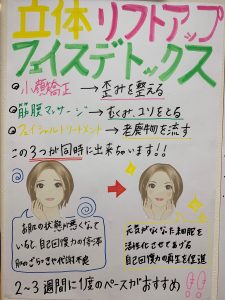 立体リフトアップ
フェイスデトックス
●小顔矯正 → 歪みを整える
●筋膜マッサージ → むくみ、コリをとる
●フェイシャルトリートメント → 老廃物を流す
この3つが同時に出来ちゃいます!!
お肌の状態が悪くなって
いると、自己回復力の停滞
肌のざらつきや代謝不良
元気がなくなった細胞を
活性化させてあげる
自己回復力の再生を促進
2~3週間に1度のペースがおすすめ!!